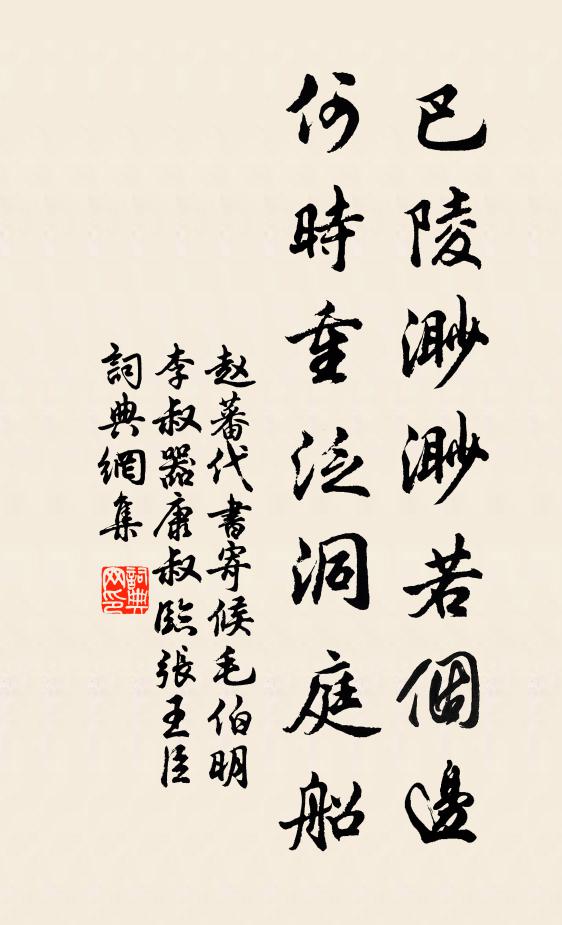 巴陵渺渺若個邊
何時重泛洞庭船
赵蕃代書寄候毛伯明
李叔器康叔臨張王臣
詞典網集
詞典
网印